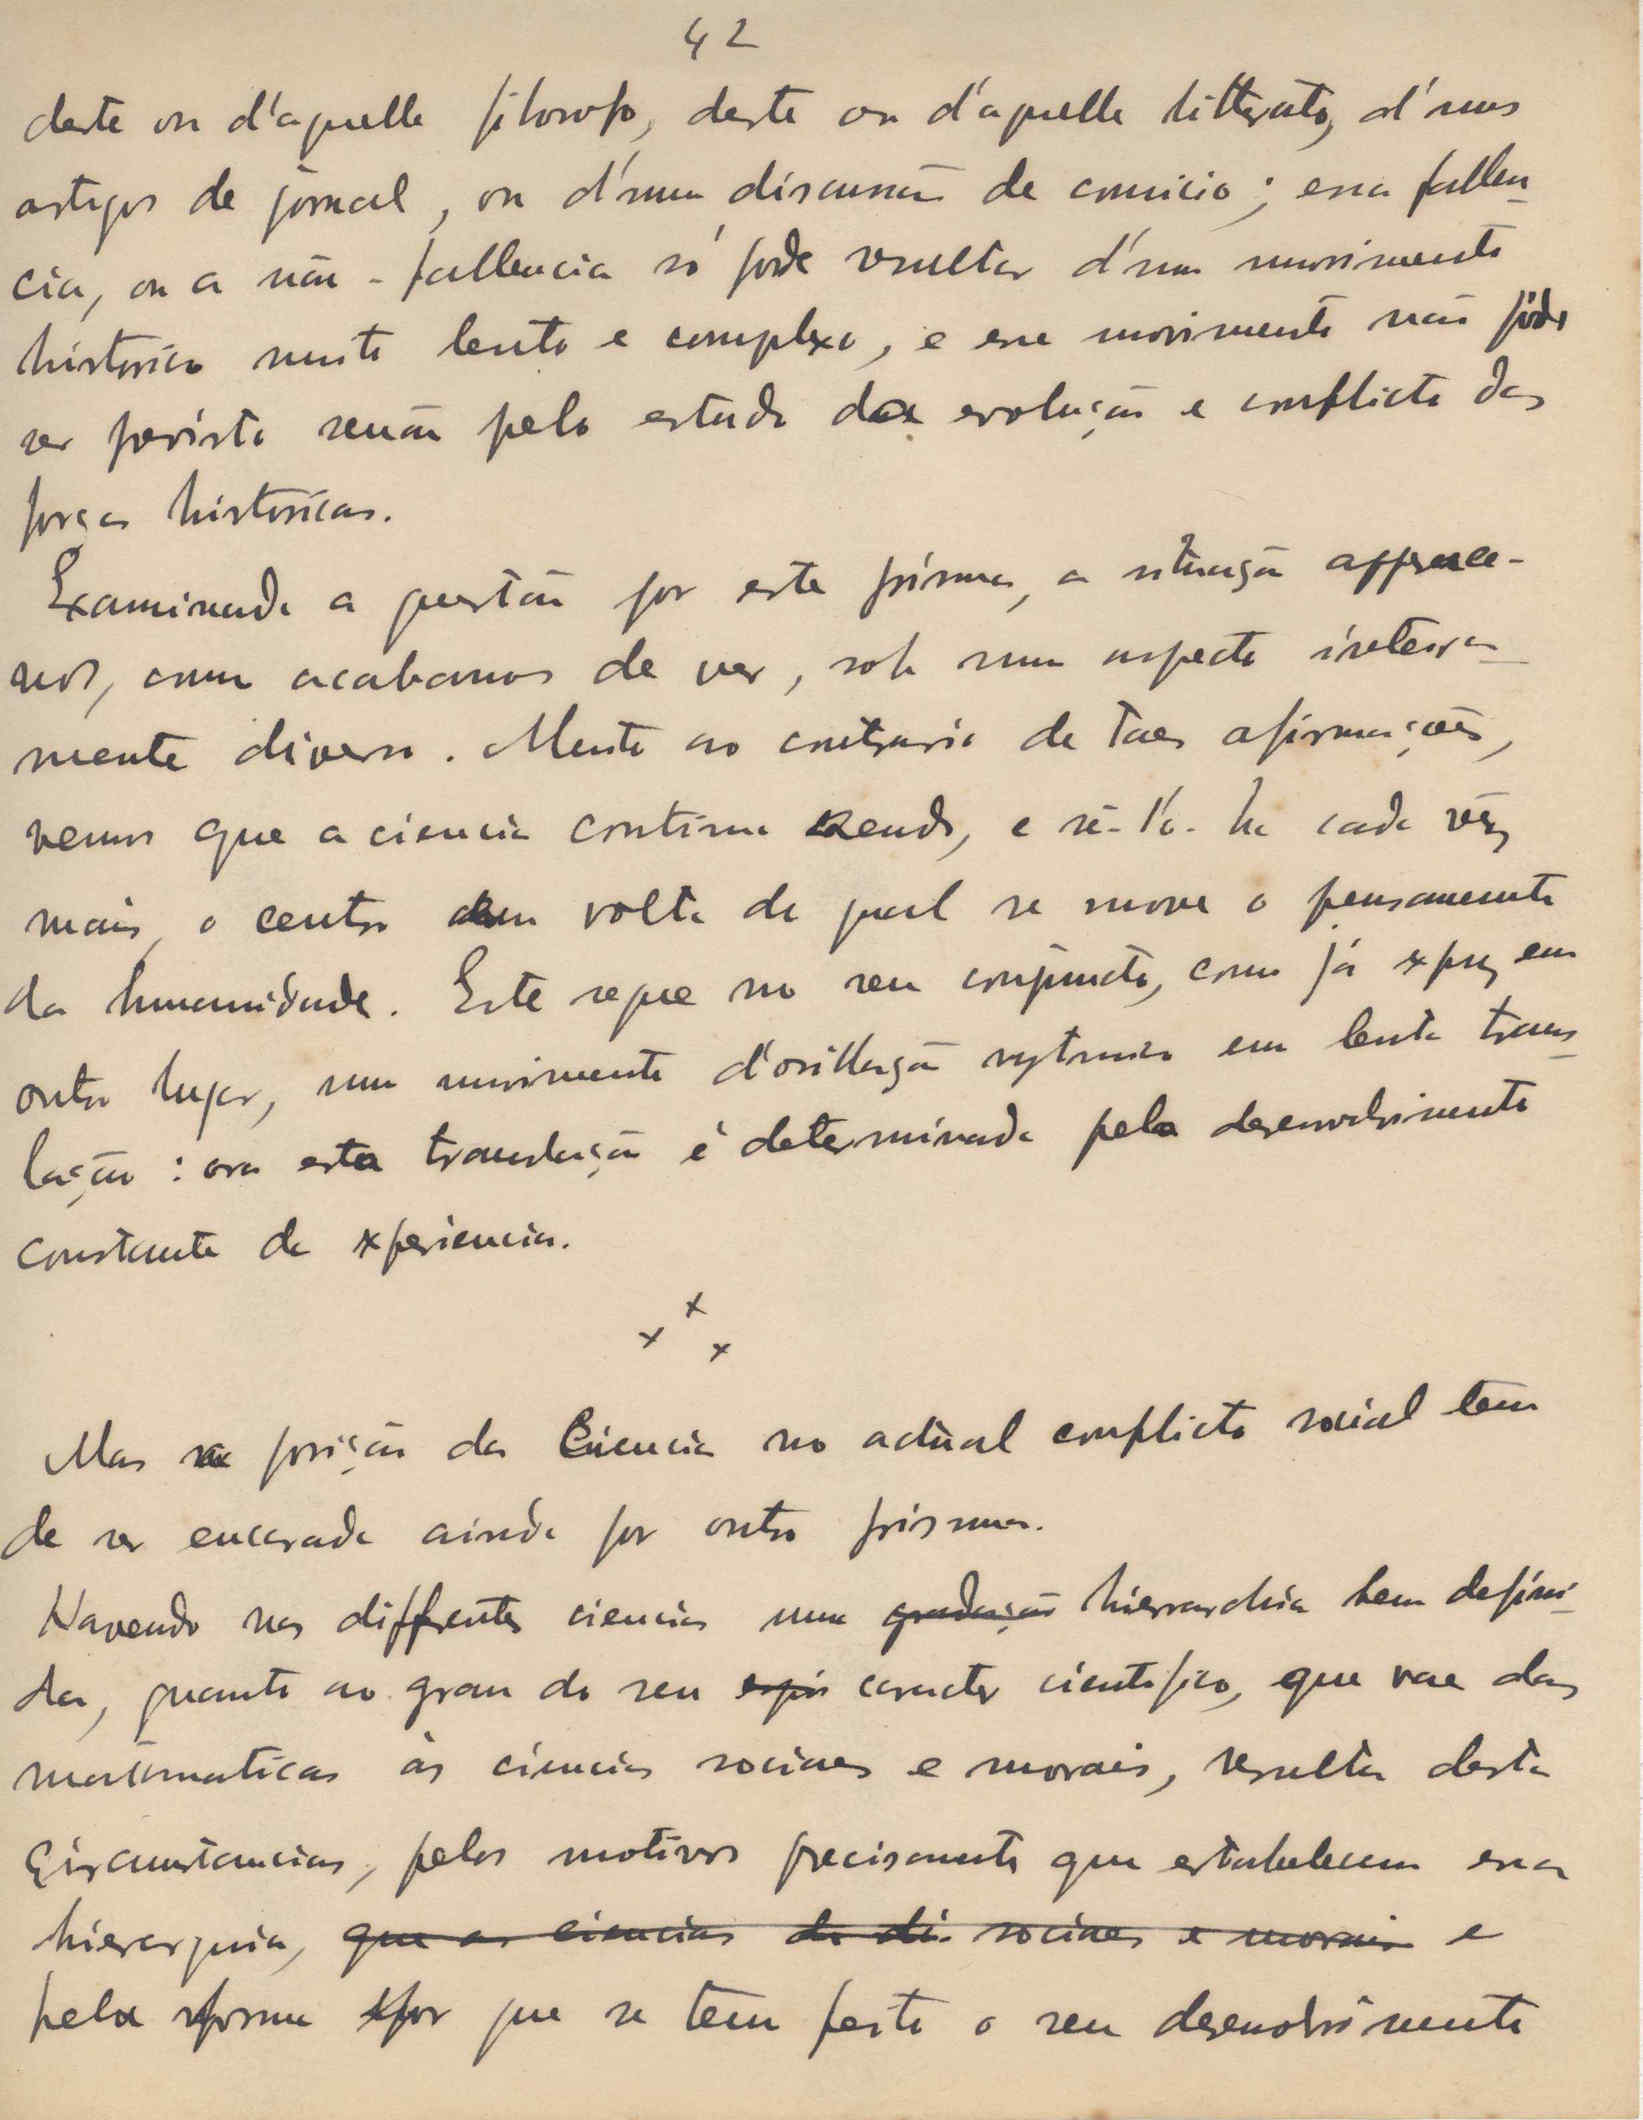 42
deste ou d'aquelle filosofo, deste ou d'aquelle litterato, d'uns
artigos de jornal, ou d'uma discussão de comicio; essa fallen-
cia, ou a não-fallencia só pode resultar d'um movimento
historico muito lento e complexo, e esse movimento não póde
ser previsto senão pelo estudo da evolução e conflicto das
forças historicas.
Examinada a questão por este prisma, a situação apparece-
nos, como acabamos de ver, sob um aspecto inteira-
mente diverso. Muito ao contrario de taes afirmações,
vemos que a ciencia continua sendo, e sê-l'o-ha cada vêz
mais, o centro em volta do qual se move o pensamento
da humanidade. Este segue no seu conjuncto, como já expuz em
outro lugar, um movimento d'oscillação rytmica em lenta trans-
lação: ora esta translação é determinada pelo desenvolvimento
constante da experiencia.
x x x
Mas a posição da Ciencia no actual conflicto social tem
de ser encarada ainda por outro prisma.
Havendo nas diffrentes ciencias uma gradação hierarchia bem defini-
da, quanto ao grau do seu caracter cientifico, que vae das
matematicas ás ciencias sociaes e moraes, resulta desta
circumstancias, pelos motivos precisamente que estabelecem essa
hierarquia, que as ciencias de di sociaes e moraes e
pela forma por que se tem feito o seu desenvolvimento